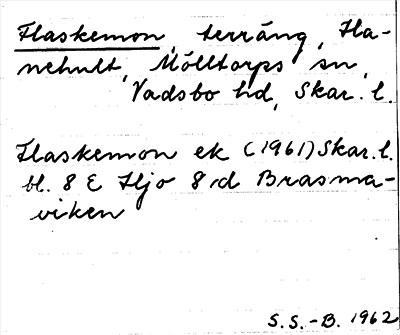 Flaskemon, terräng, Ha-
nehult, Mölltorps sn,
Vadsbo hd, Skar. l.
Flaskemon ek (1961) Skar. l.
bl. 8 E Hjo 8 d Brasma-
viken
S.S.-B. 1962